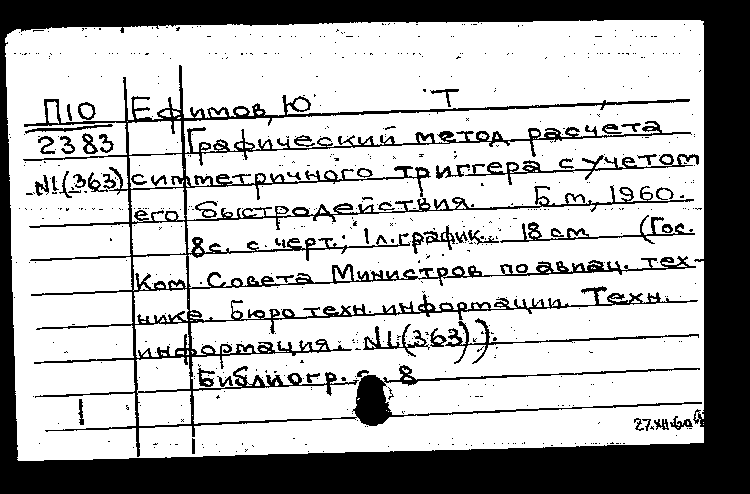 П10 Ефимов, Ю Т
2383 Графический метод расчета
N1(363) симметричного триггера с учетом
его быстродействия. Б.м., 1960.
8с. с черт.; 1л.график. 18 см (Гос.
Ком. Совета Министров по авиац. тех-
нике. Бюро техн. информации. Техн.
информация. N1(363)).
Библиогр. с. 8
1
27.XII.60